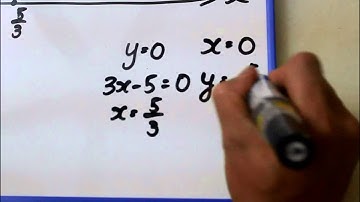 x
5/3
y=0 x=0
3x-5=0 y=
x=5/3